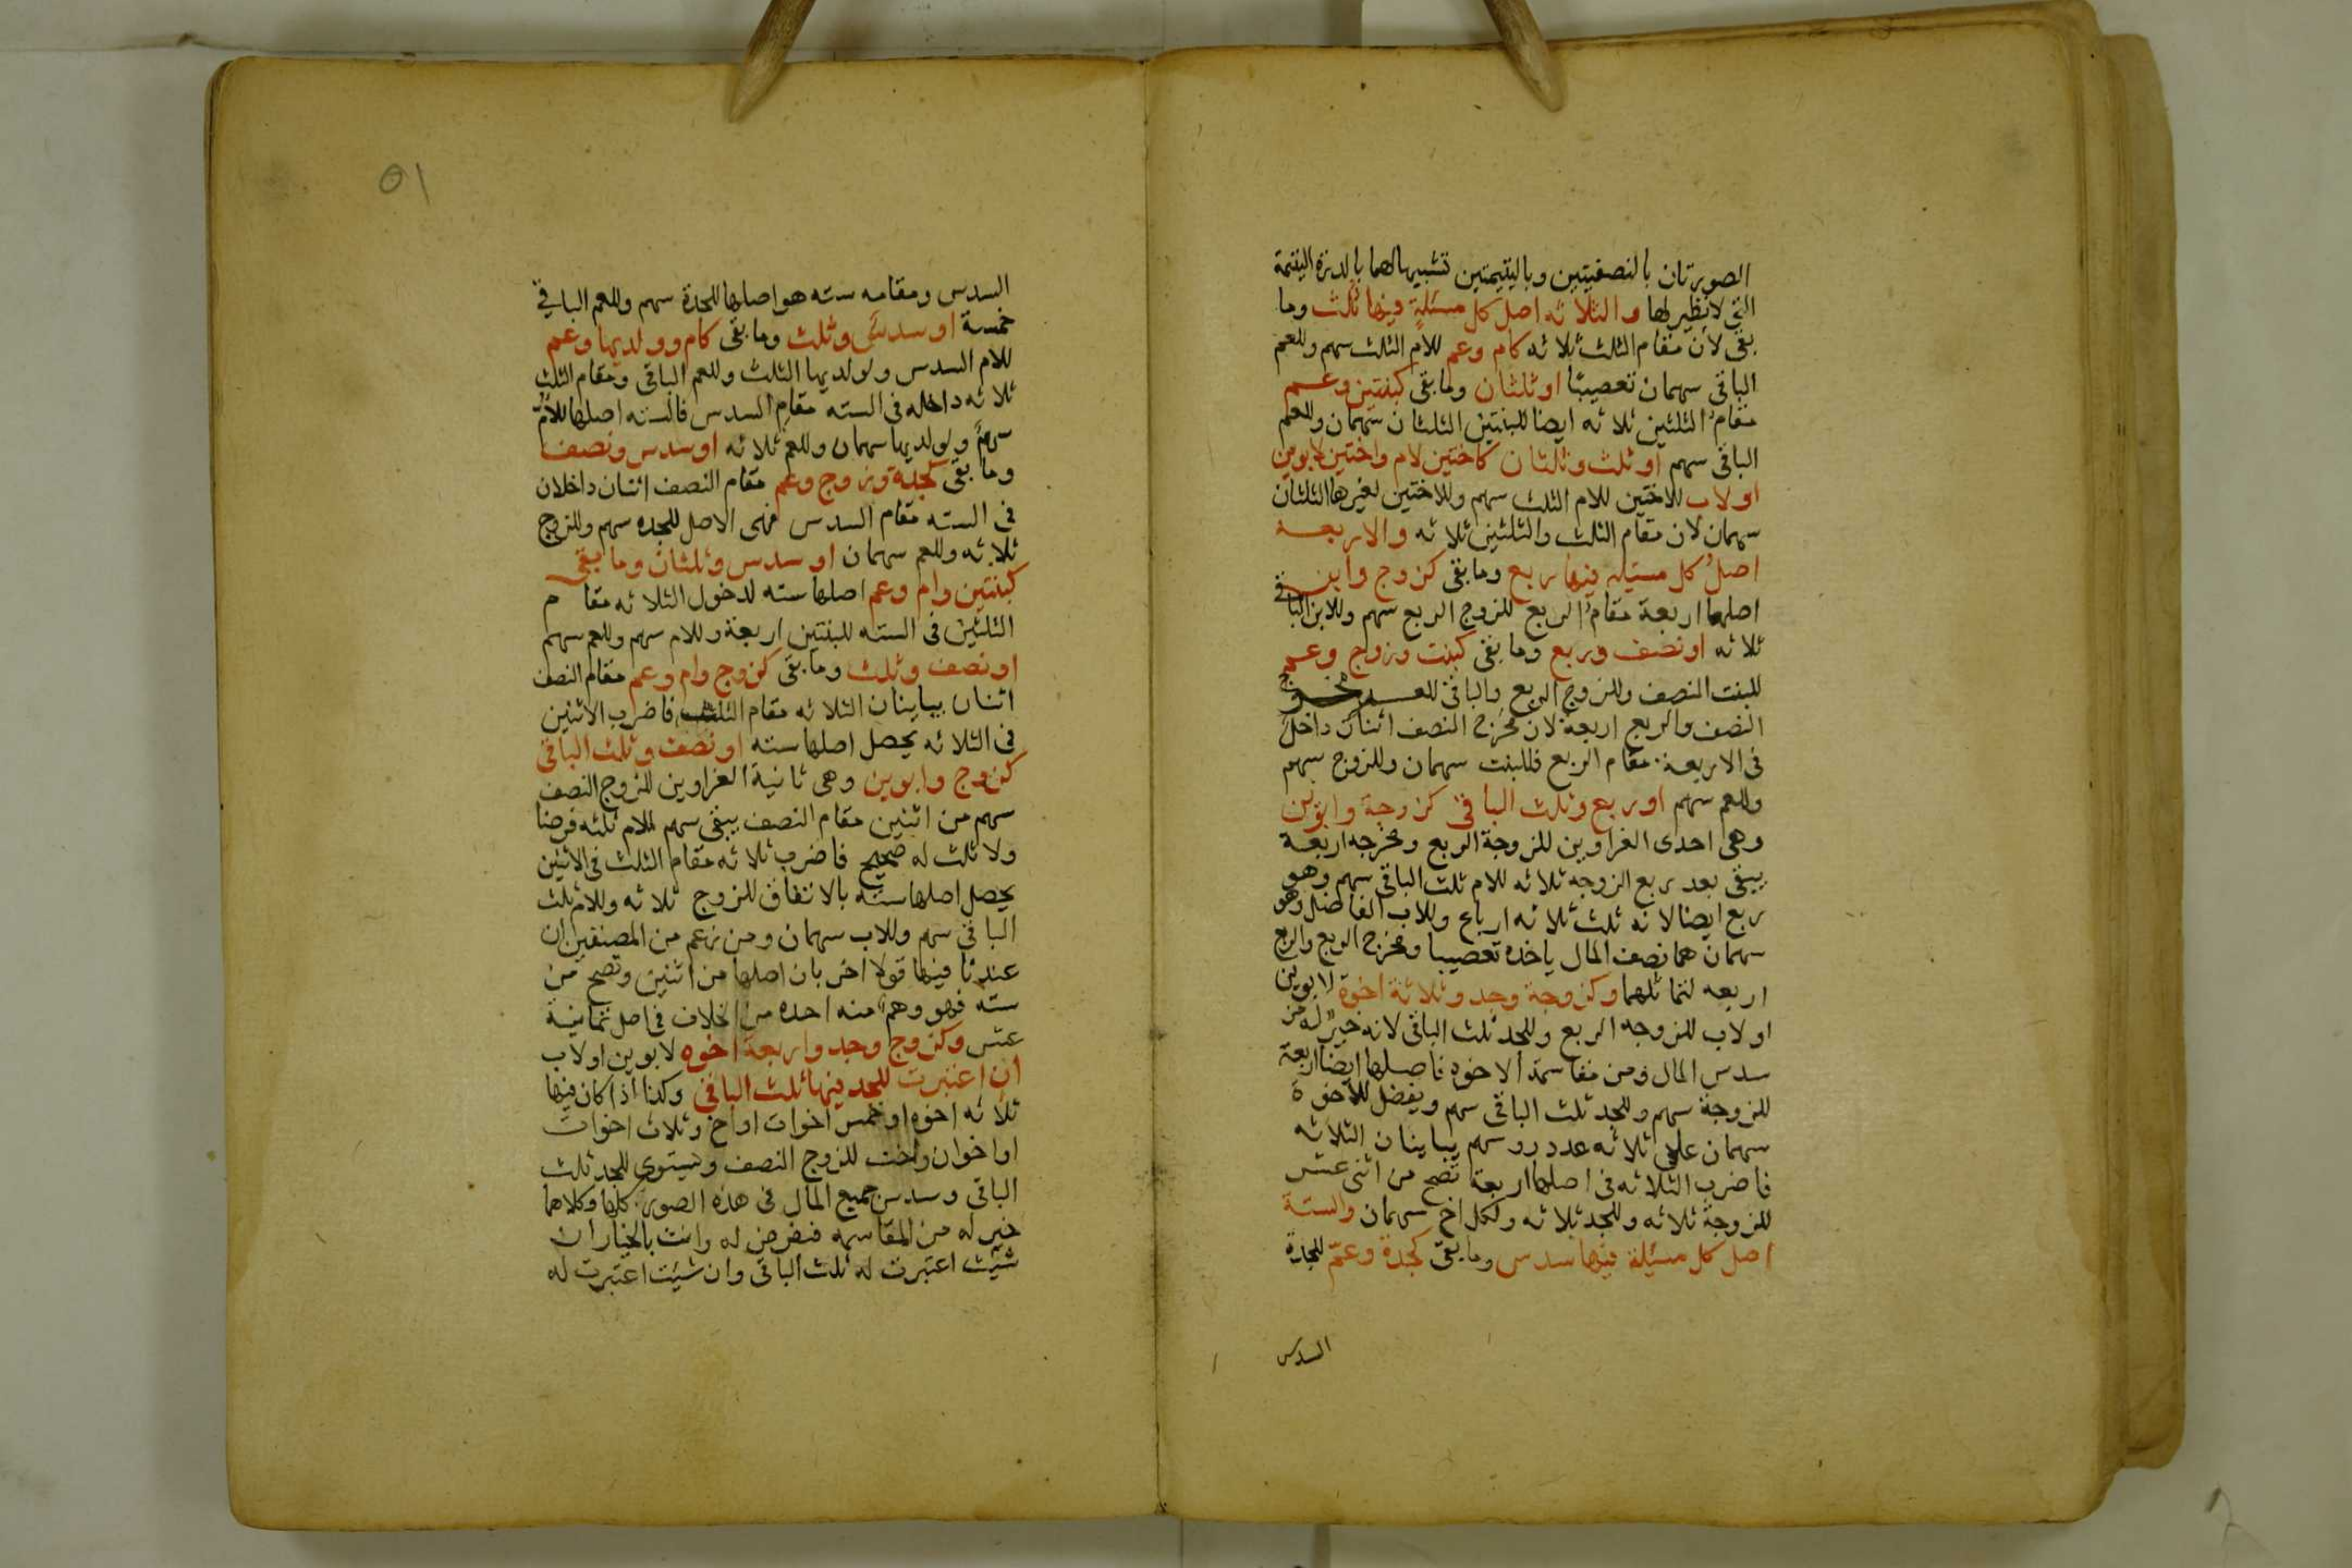 الصورتان بالنصفيتين وباليتيمتين تشبيها لهما بالدرة اليتيمة
التي لا نظير لها والثلاثه اصل كل مسئلة فيها ثلث وما
بقى لان مقام الثلث ثلاثه كام وعم للام الثلث سهم وللعم
الباقى سهمان تعصيبًا او ثلثان وما بقى كبنتين وعم
مقام الثلثين ثلاثه ايضا للبنتين الثلثان سهمان وللعم
الباقى سهم او ثلث وثلثان كاختين لام واختين لابوين
او لاب للاختين للام الثلث سهم وللاختين لغيرها الثلثان
سهمان لان مقام الثلث والثلثين ثلاثه والاربعة
اصل كل مسئله فيها ربع وما بقى كزوج وابن
اصلها اربعة مقام الربع للزوج الربع سهم وللابن الباقى
ثلاثه او نصف وربع وما بقى كبنت وزوج وعم
للبنت النصف وللزوج الربع والباقى للعم ومخرج
النصف والربع اربعة لان مخرج النصف اثنان داخل
فى الاربعة مقام الربع فللبنت سهمان وللزوج سهم
وللعم سهم او ربع وثلث الباقى كزوجة وابوين
وهى احدى الغراوين للزوجة الربع ومخرجه اربعة
يبقى بعد ربع الزوجه ثلاثه للام ثلث الباقى سهم وهو
ربع ايضا لانه ثلث ثلاثه ارباع وللاب الفاضل وهو
سهمان هما نصف المال ياخذه تعصيبا ومخرج الربع والربع
اربعه لتماثلهما وكزوجة وجد وثلاثة اخوة لابوين
او لاب للزوجه الربع وللجد ثلث الباقى لانه خير له من
سدس المال ومن مقاسمة الاخوه فاصلها ايضا اربعة
للزوجة سهم وللجد ثلث الباقى سهم ويفضل للاخوة
سهمان على ثلاثه عدد روسهم يباينان الثلاثه
فاضرب الثلاثه فى اصلها اربعة تصح من اثنى عشر
للزوجة ثلاثه وللجد ثلاثه ولكل اخ سهمان والستة
اصل كل مسئلة فيها سدس وما بقى كجدة وعم للجدة
السدس
٥١
السدس ومقامه سته هو اصلها للجدة سهم وللعم الباقي
خمسة او سدس وثلث وما بقى كام وولديها وعم
للام السدس ولولديها الثلث وللعم الباقى ومقام الثلث
ثلاثه داخله فى السته مقام السدس فالسته اصلها للام
سهم ولولديها سهمان وللعم ثلاثه او سدس ونصف
وما بقى كجدة وزوج وعم مقام النصف اثنان داخلان
فى السته مقام السدس فهى الاصل للجده سهم وللزوج
ثلاثه وللعم سهمان او سدس وثلثان وما بقى
كبنتين وام وعم اصلها سته لدخول الثلاثه مقام
الثلثين فى السته للبنتين اربعة وللام سهم وللعم سهم
او نصف وثلث وما بقى كزوج وام وعم مقام النصف
اثنان يباينان الثلاثه مقام الثلث فاضرب الاثنين
فى الثلاثه يحصل اصلها سته او نصف وثلث الباقى
كزوج وابوين وهى ثانية الغراوين للزوج النصف
سهم من اثنين مقام النصف يبقى سهم للام ثلثه فرضا
ولا ثلث له صحيح فاضرب ثلاثه مقام الثلث فى الاثنين
يحصل اصلها سته بالاتفاق للزوج ثلاثه وللام ثلث
الباقى سهم وللاب سهمان ومن زعم من المصنفين ان
عندنا فيها قولا اخر بان اصلها من اثنين وتصح من
سته فهو وهم منه اخذه من الخلاف فى اصل ثمانية
عشر وكزوج وجد واربعة اخوه لابوين او لاب
ان اعتبرت للجد فيها ثلث الباقى وكذا اذا كان فيها
ثلاثه اخوه او خمس اخوات او اخ وثلاث اخوات
او اخوان واخت للزوج النصف ويستوى للجد ثلث
الباقى وسدس جميع المال فى هذه الصور كلها وكلاهما
خير له من المقاسمه فنفرض له وانت بالخيار ان
شئت اعتبرت له ثلث الباقى وان شئت اعتبرت له